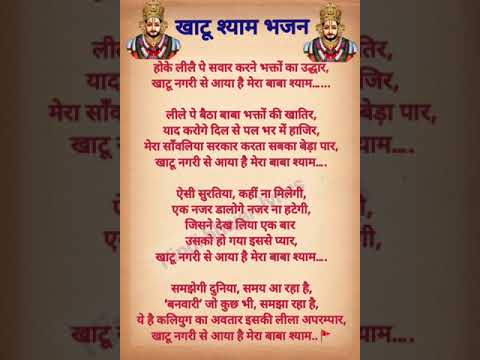 खाटू श्याम भजन
होके लीलै पे सवार करने भक्तों का उद्धार,
खाटू नगरी से आया है मेरा बाबा श्याम......
लीले पे बैठा बाबा भक्तों की खातिर,
याद करोगे दिल से पल भर में हाजिर,
मेरा साँवलिया सरकार करता सबका बेड़ा पार,
खाटू नगरी से आया है मेरा बाबा श्याम....
ऐसी सुरतिया, कहीं ना मिलेगी,
एक नजर डालोगे नजर ना हटेगी,
जिसने देख लिया एक बार
उसको हो गया इससे प्यार,
खाटू नगरी से आया है मेरा बाबा श्याम....
समझेगी दुनिया, समय आ रहा है,
'बनवारी' जो कुछ भी, समझा रहा है,
ये है कलियुग का अवतार इसकी लीला अपरम्पार,
खाटू नगरी से आया है मेरा बाबा श्याम..